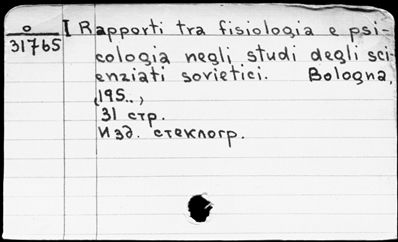 o
31765
I Rapporti tra fisiologia e psi-
cologia negli studi degli sci-
enziati sovietici. Bologna,
(195..,)
31 стр.
Изд. стеклогр.